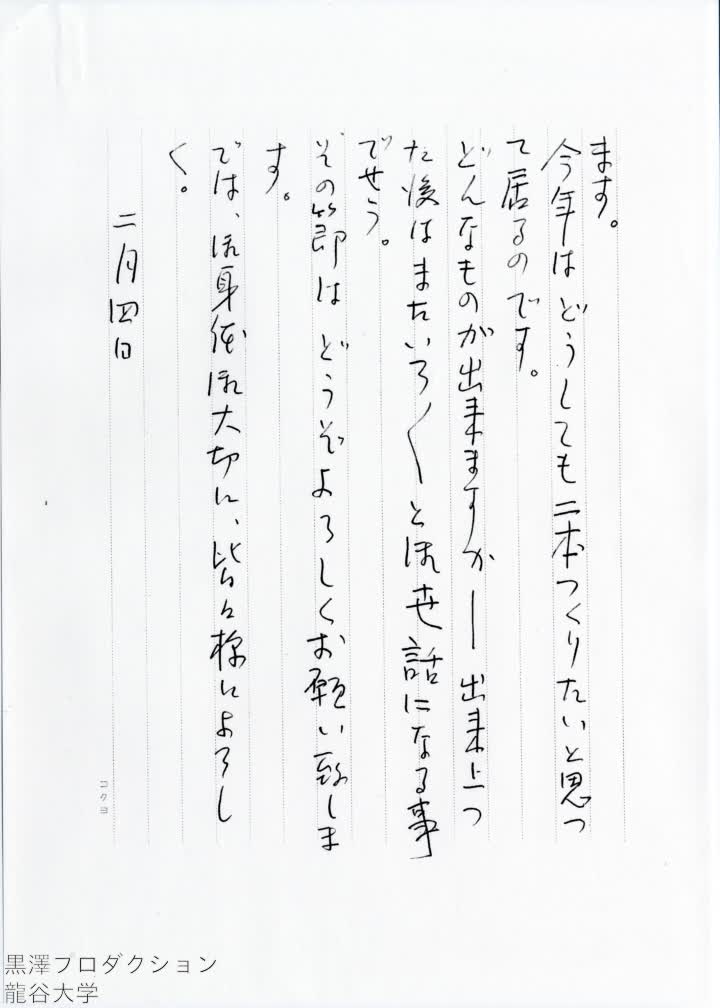 ます。
今年はどうしても二本つくりたいと思つ
て居るのです。
どんなものが出来ますか―出来上つ
た後はまたいろ〱とお世話になる事
でせう。
その節はどうぞよろしくお願い致しま
す。
では、お身体お大切に、皆々様によろし
く。
二月四日
コクヨ
黒澤プロダクション
龍谷大学